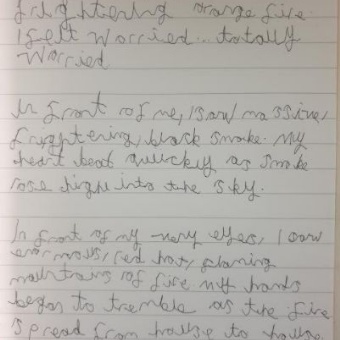 frightening orange fire.
I felt worried... totally
worried
In front of me, I saw massive,
frightening, black smoke. My
heart beat quickly as smoke
rose high into the sky.
In front of my very eyes, I saw
enormous, red hot, flaming
mountains of fire my hands
began to tremble as the fire
spread from house to house